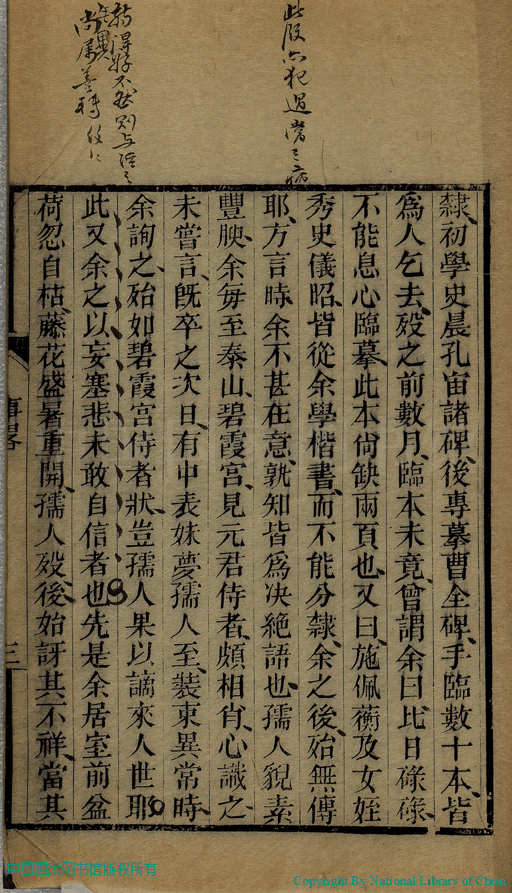 此段亦犯過當之病
尚屬善轉
隸初學史晨孔宙諸碑後專摹曹全碑手臨數十本皆
為人乞去歿之前數月臨本未竟曾謂余曰比日碌碌
不能息心臨摹此本尚缺兩頁也又曰施佩蘅及女姪
秀史儀昭皆從余學楷書而不能分隸余之後殆無傳
耶方言時余不甚在意孰知皆為决絕語也孺人貌素
豐腴余每至泰山碧霞宮見元君侍者頗相肖心識之
未嘗言旣卒之次日有中表妹夢孺人至裝束異常時
余詢之殆如碧霞宮侍者狀豈孺人果以謫來人世耶
此又余之以妄塞悲未敢自信者也先是余居室前盆
荷忽自枯藤花盛暑重開孺人歿後始訝其不祥當其
事畧
三
中国国家图书馆版权所有
Copyright By National Library of China